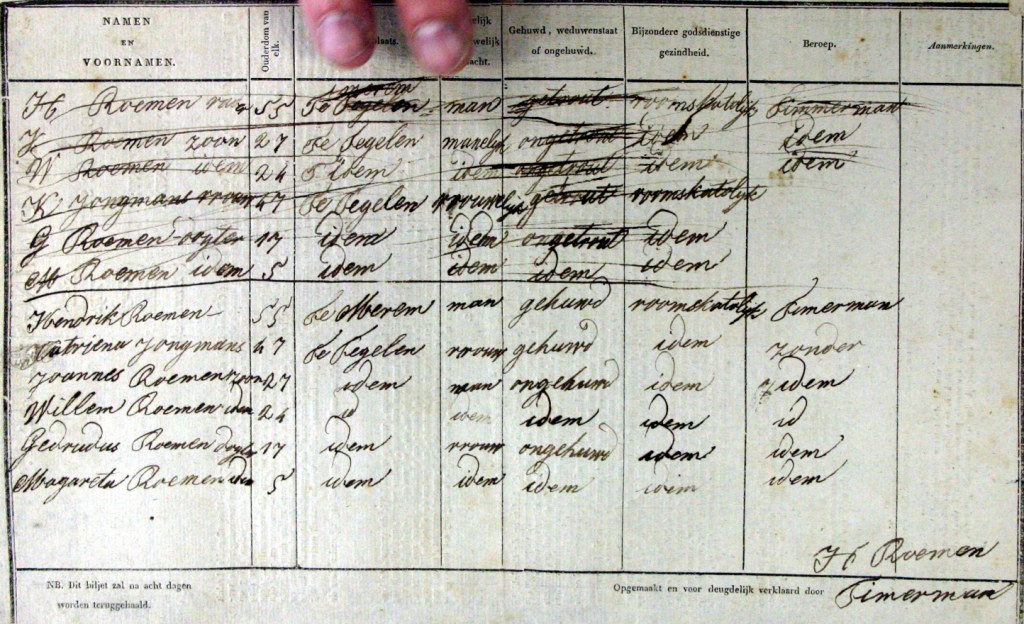 NAMEN EN VOORNAMEN. Ouderdom van elk. plaats. Gehuwd, weduwenstaat of ongehuwd. Bijzondere godsdienstige gezindheid. Beroep. Aanmerkingen.
H Roemen 55 te tegelen man getrout roomskatolyk Timmerman
H Roemen zoon 27 te tegelen manelyk ongetrout idem idem
W Roemen idem 24 idem idem ongetrout idem idem
K Jongmans vrouw 47 te tegelen vrouwelyk getrout roomskatolyk
G Roemen 17 idem idem ongetrout idem
M Roemen idem 5 idem idem idem idem
Hendrik Roemen 55 te Merem man gehuwd roomskatolyk Timerman
Catriena Jongmans 47 te tegelen vrouw gehuwd idem zonder
Joannes Roemen zoon 27 idem man ongehuwd idem idem
Willem Roemen idem 24 id idem idem idem id
Gedrudus Roemen 17 idem vrouw ongehuwd idem idem
Magareta Roemen idem 5 idem idem idem idem idem
H Roemen
NB. Dit biljet zal na acht dagen Opgemaakt en voor deugdelijk verklaard door Timerman
worden teruggehaald.